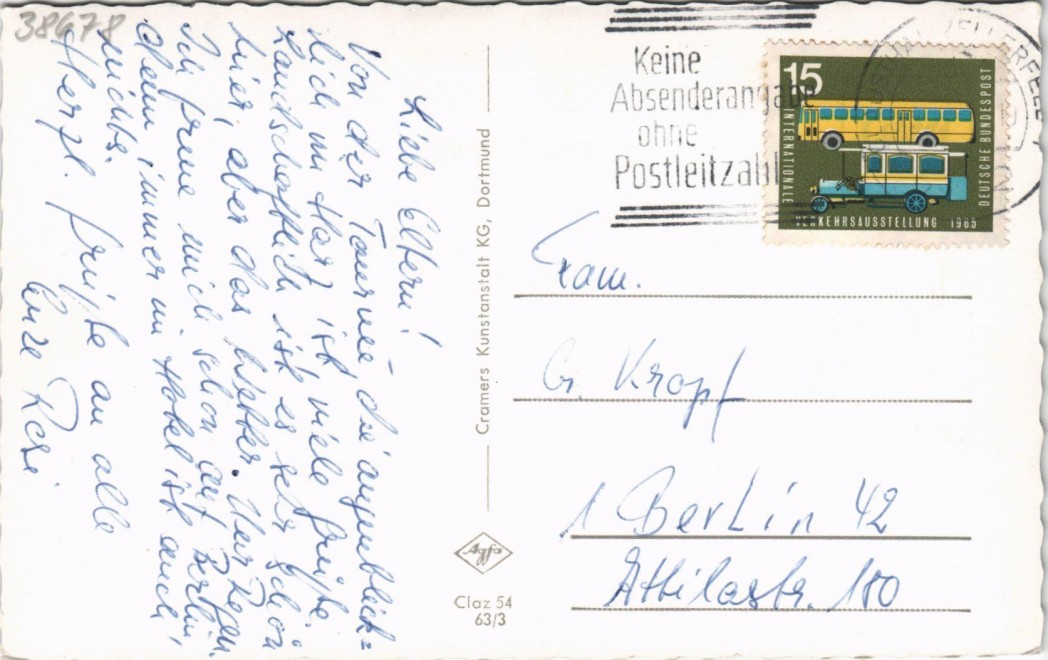 38678
Liebe Eltern!
Von der Tournee, die augenblick=
lich im Harz ist viele Grüße.
Landschaftlich ist es sehr schön
hier, aber das Wetter. Nur Regen.
Ich freue mich schon auf Berlin,
denn immer im Hotel ist auch
nichts.
Herzl. Grüße an alle
Eure Rosi
Cramers Kunstanstalt KG, Dortmund
Agfa
Claz 54
63/3
Keine
Absenderangabe
ohne
Postleitzahl
15
INTERNATIONALE
VERKEHRSAUSSTELLUNG 1965
DEUTSCHE BUNDESPOST
Fam.
G. Kropf
1 Berlin 42
Attilastr. 180